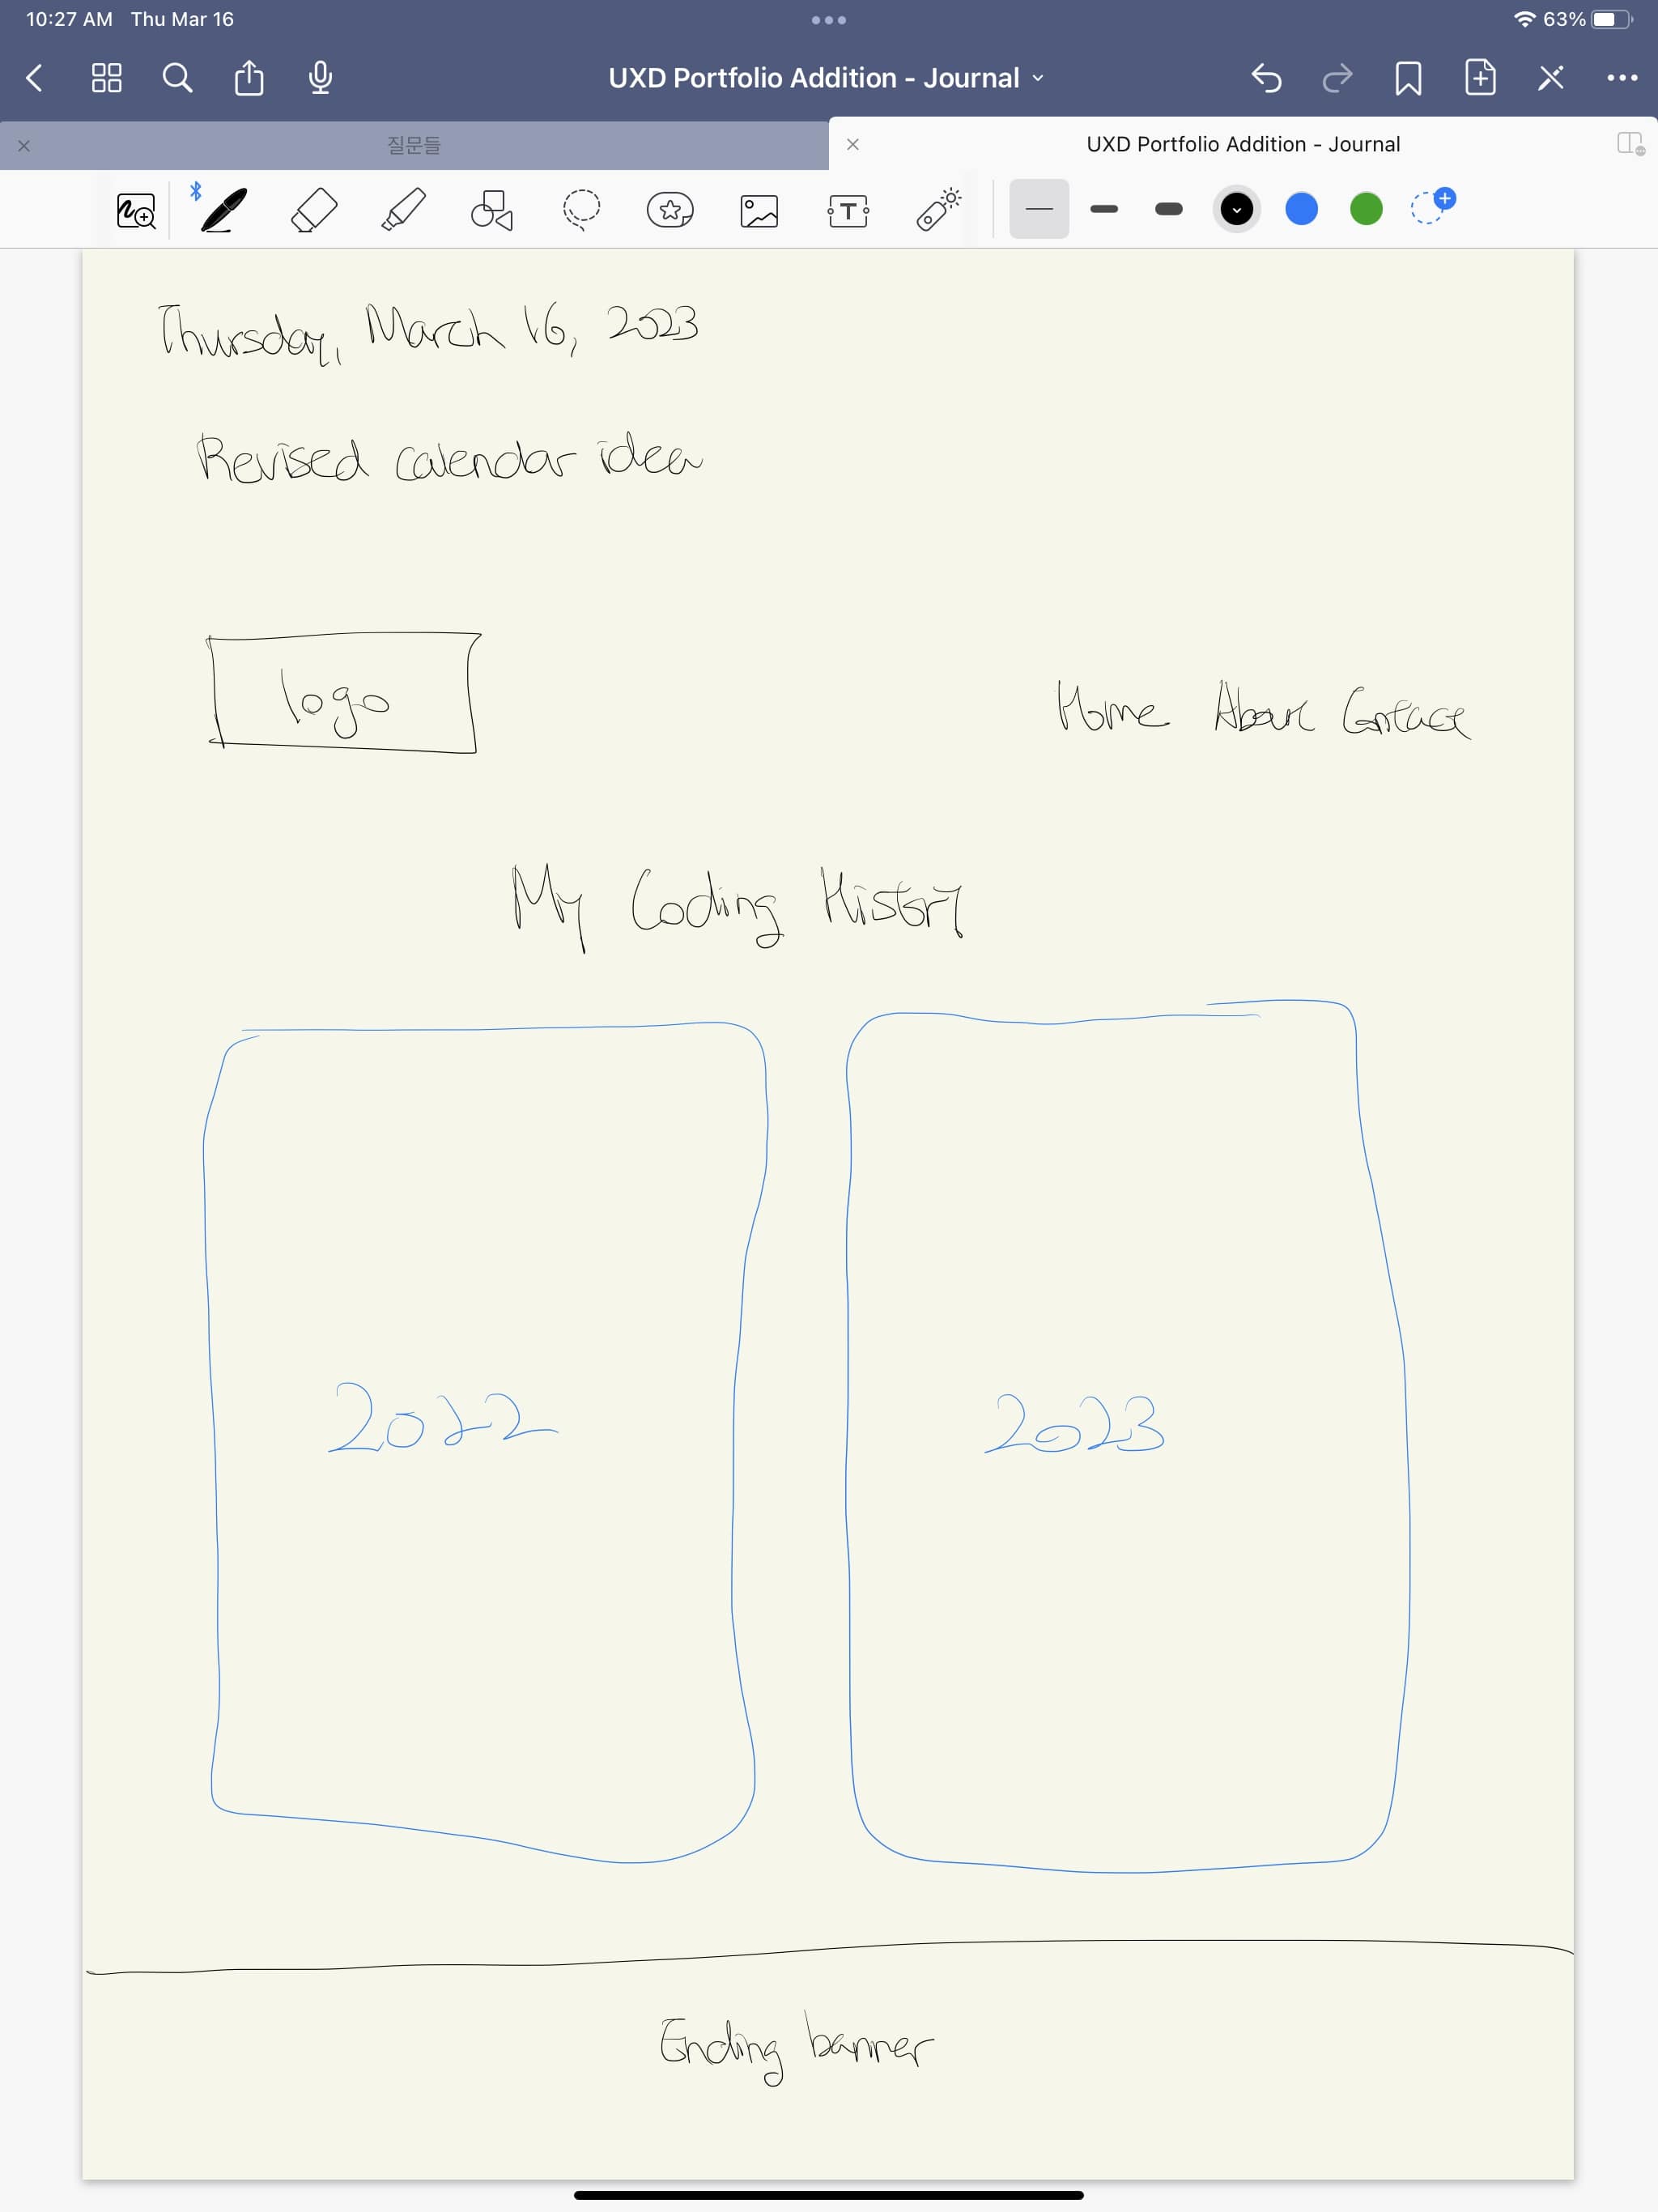 10:27 AM Thu Mar 16
63%
UXD Portfolio Addition - Journal
질문들
UXD Portfolio Addition - Journal
T
Thursday, March 16, 2023
Revised calendar idea
logo
Home About Contact
My Coding History
2022
2023
Ending banner